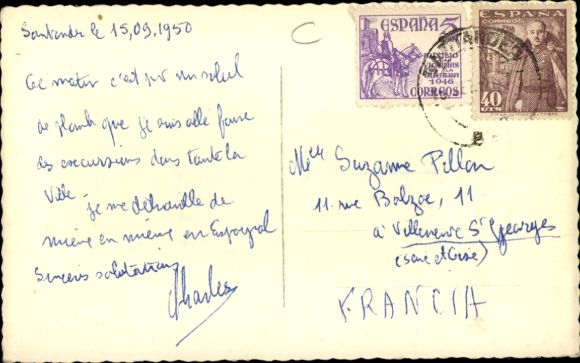 Santander le 15,09,1950
Ce matin c'est par un soleil
de plomb que je suis allé faire
des excurssions dans toute la
ville.
je me débrouille de
mieux en mieux en Espagnol
Sincères salutations
Charles
ESPAÑA 5
1946
CORREOS
ESPAÑA
CORREOS
40
CTS
SANTANDER
Melle Suzanne Pillon
11. rue Balzac, 11
à Villeneuve St Georges
(Seine et Oise)
FRANCIA